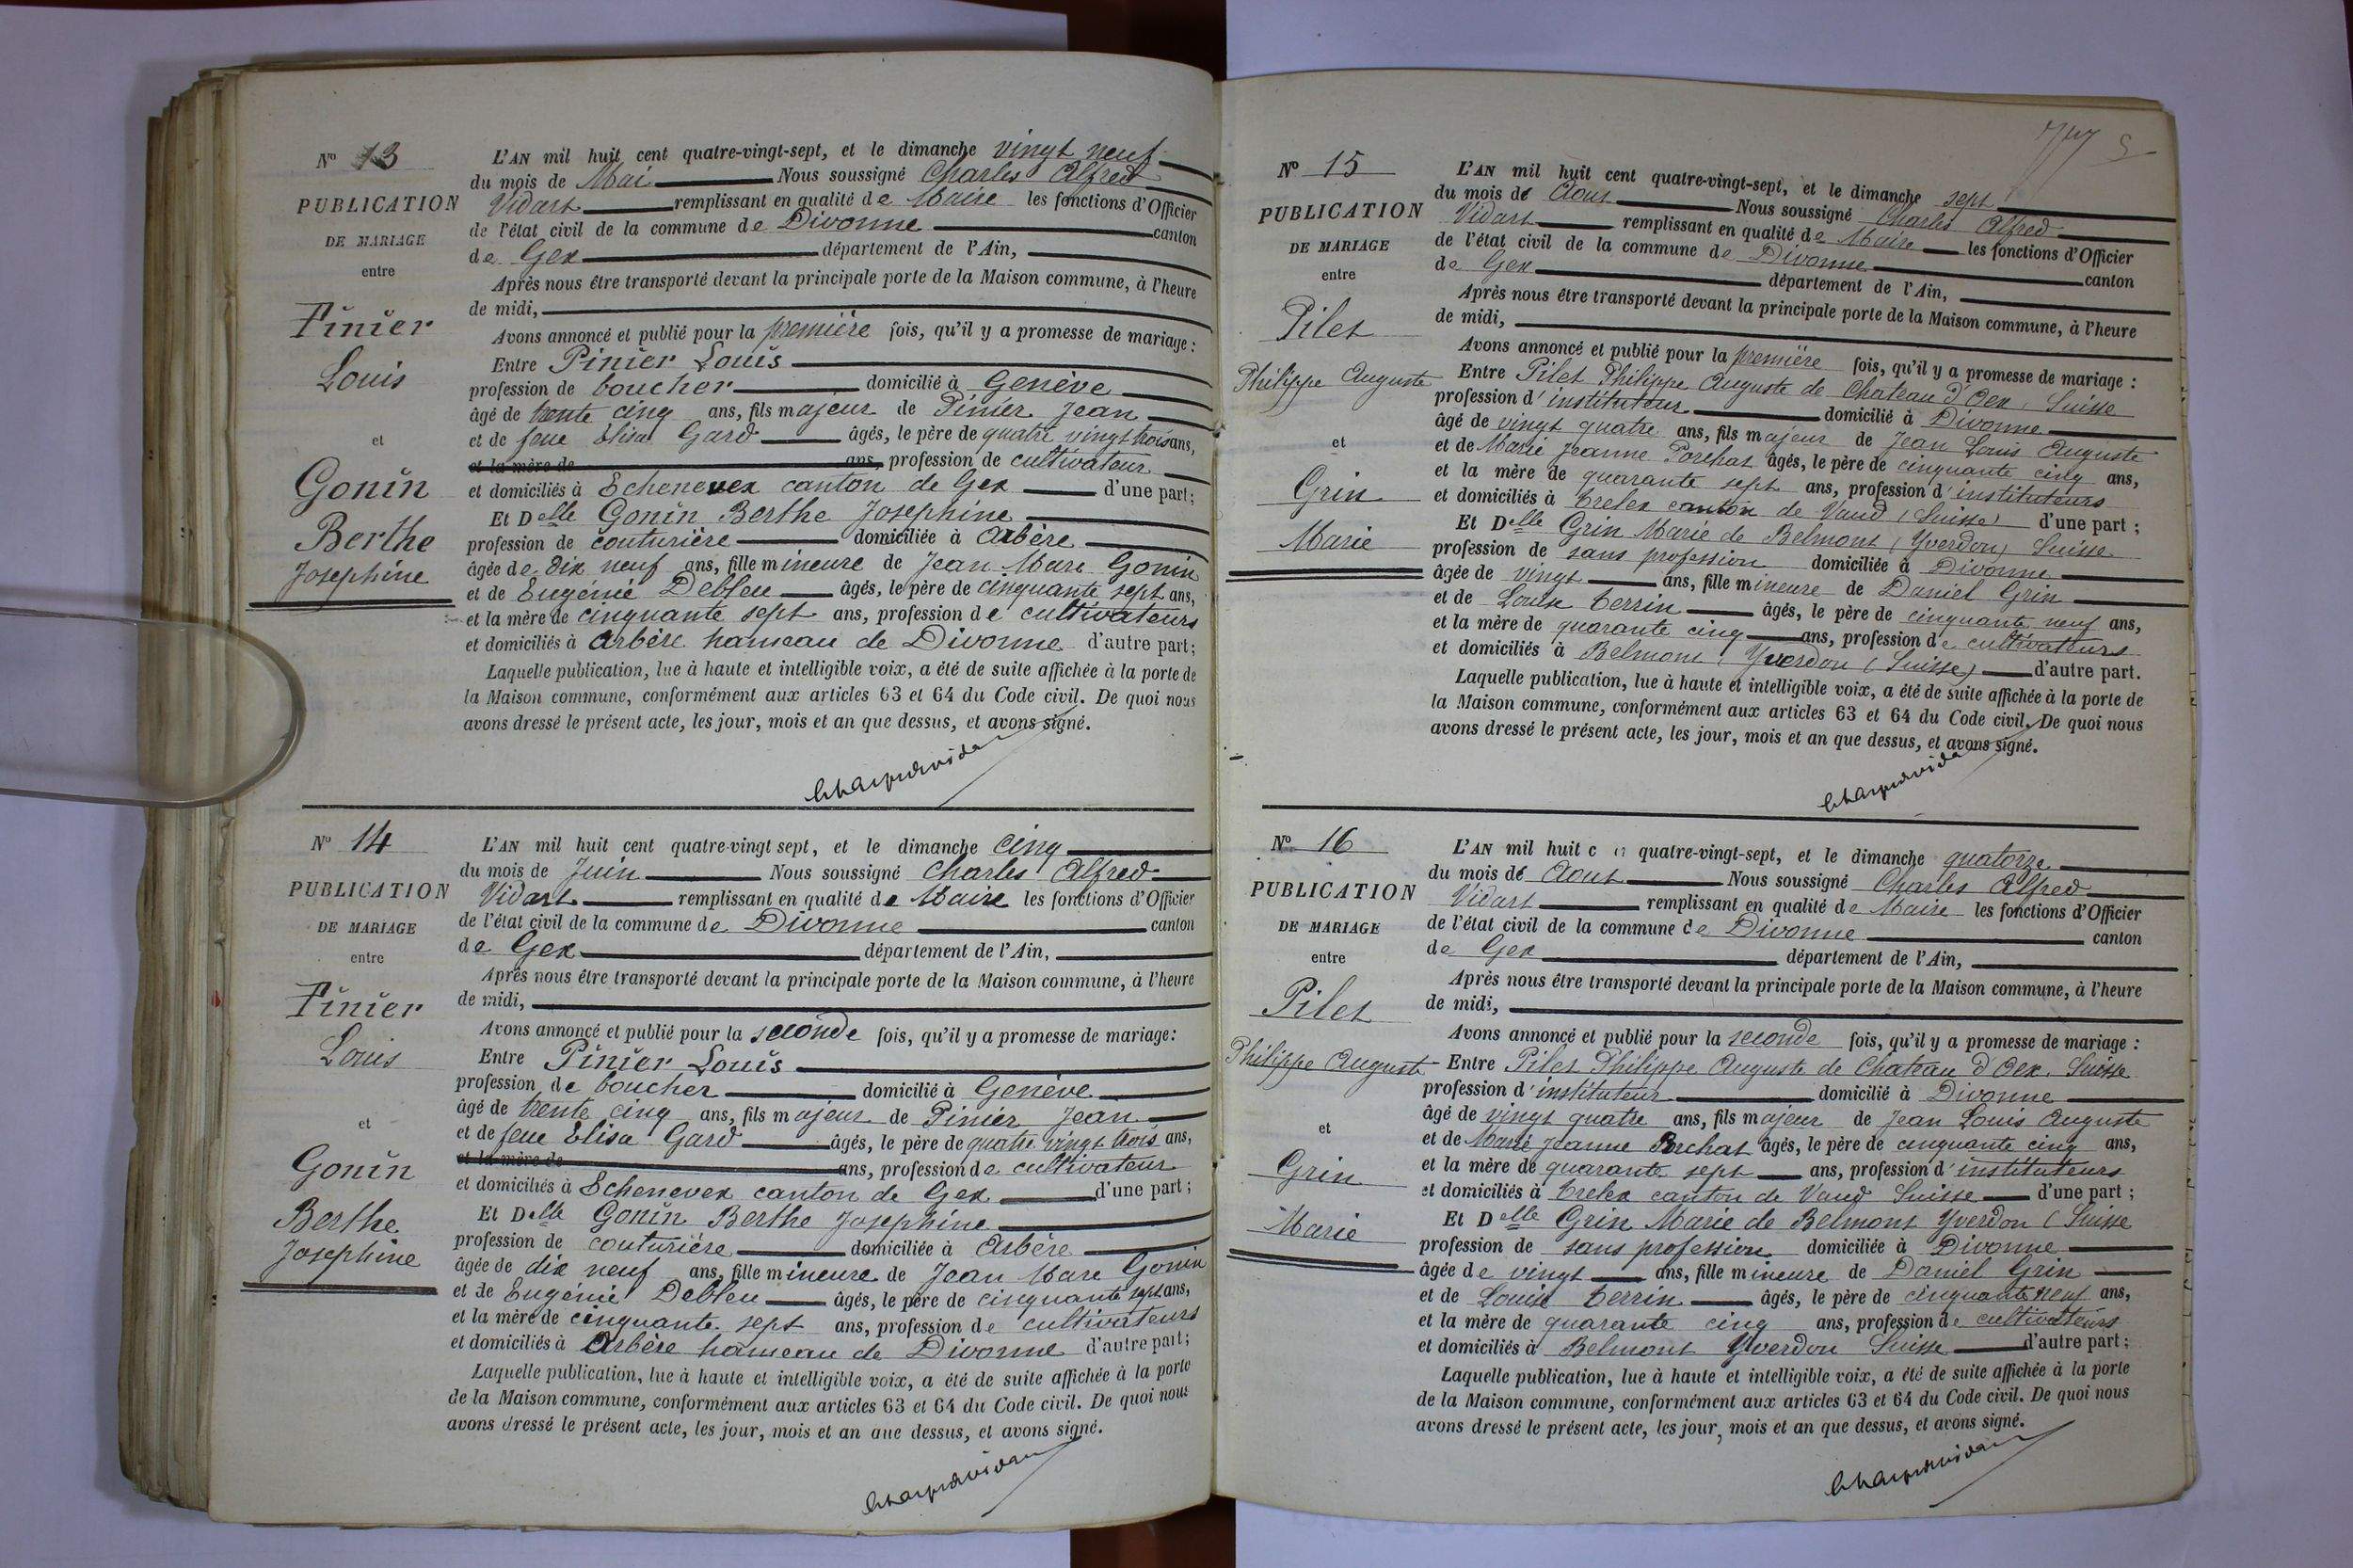 N° 13
PUBLICATION
DE MARIAGE
entre
Pinier
Louis
et
Gonin
Berthe
Josephine
L'AN mil huit cent quatre-vingt-sept, et le dimanche vingt neuf
du mois de Mai Nous soussigné Charles Alfred
Vidart remplissant en qualité de Maire les fonctions d'Officier
de l'état civil de la commune de Divonne canton
de Gex département de l'Ain,
Après nous être transporté devant la principale porte de la Maison commune, à l'heure
de midi,
Avons annoncé et publié pour la première fois, qu'il y a promesse de mariage :
Entre Pinier Louis
profession de boucher domicilié à Genève
âgé de trente cinq ans, fils majeur de Pinier Jean
et de feue Elisa Gard âgés, le père de quatre vingt trois ans,
et la mère de ans, profession de cultivateur
et domiciliés à Echenevex canton de Gex d'une part ;
Et Delle Gonin Berthe Josephine
profession de couturière domiciliée à Arbère
âgée de dix neuf ans, fille mineure de Jean Marc Gonin
et de Eugénie Debleu âgés, le père de cinquante sept ans,
et la mère de cinquante sept ans, profession de cultivateurs
et domiciliés à Arbère hameau de Divonne d'autre part ;
Laquelle publication, lue à haute et intelligible voix, a été de suite affichée à la porte de
la Maison commune, conformément aux articles 63 et 64 du Code civil. De quoi nous
avons dressé le présent acte, les jour, mois et an que dessus, et avons signé.
N° 14
PUBLICATION
DE MARIAGE
entre
Pinier
Louis
et
Gonin
Berthe
Josephine
L'AN mil huit cent quatre-vingt sept, et le dimanche cinq
du mois de Juin Nous soussigné Charles Alfred
Vidart remplissant en qualité de Maire les fonctions d'Officier
de l'état civil de la commune de Divonne canton
de Gex département de l'Ain,
Après nous être transporté devant la principale porte de la Maison commune, à l'heure
de midi,
Avons annoncé et publié pour la seconde fois, qu'il y a promesse de mariage :
Entre Pinier Louis
profession de boucher domicilié à Genève
âgé de trente cinq ans, fils majeur de Pinier Jean
et de feue Elisa Gard âgés, le père de quatre vingt trois ans,
et la mère de ans, profession de cultivateur
et domiciliés à Echenevex canton de Gex d'une part ;
Et Delle Gonin Berthe Josephine
profession de couturière domiciliée à Arbère
âgée de dix neuf ans, fille mineure de Jean Marc Gonin
et de Eugénie Debleu âgés, le père de cinquante sept ans,
et la mère de cinquante sept ans, profession de cultivateurs
et domiciliés à Arbère hameau de Divonne d'autre part ;
Laquelle publication, lue à haute et intelligible voix, a été de suite affichée à la porte
de la Maison commune, conformément aux articles 63 et 64 du Code civil. De quoi nous
avons dressé le présent acte, les jour, mois et an que dessus, et avons signé.
N° 15
PUBLICATION
DE MARIAGE
entre
Pilet
Philippe Auguste
et
Grin
Marie
L'AN mil huit cent quatre-vingt-sept, et le dimanche sept
du mois de Aout Nous soussigné Charles Alfred
Vidart remplissant en qualité de Maire les fonctions d'Officier
de l'état civil de la commune de Divonne canton
de Gex département de l'Ain,
Après nous être transporté devant la principale porte de la Maison commune, à l'heure
de midi,
Avons annoncé et publié pour la première fois, qu'il y a promesse de mariage :
Entre Pilet Philippe Auguste de Chateau d'Oex, Suisse
profession d'instituteur domicilié à Divonne
âgé de vingt quatre ans, fils majeur de Jean Louis Auguste
et de Marie Jeanne Porchat âgés, le père de cinquante cinq ans,
et la mère de quarante sept ans, profession d'instituteurs
et domiciliés à Trelex canton de Vaud (Suisse) d'une part ;
Et Delle Grin Marie de Belmont (Yverdon) Suisse
profession de sans profession domiciliée à Divonne
âgée de vingt ans, fille mineure de Daniel Grin
et de Louise Terrin âgés, le père de cinquante neuf ans,
et la mère de quarante cinq ans, profession de cultivateurs
et domiciliés à Belmont, Yverdon (Suisse) d'autre part.
Laquelle publication, lue à haute et intelligible voix, a été de suite affichée à la porte de
la Maison commune, conformément aux articles 63 et 64 du Code civil. De quoi nous
avons dressé le présent acte, les jour, mois et an que dessus, et avons signé.
N° 16
PUBLICATION
DE MARIAGE
entre
Pilet
Philippe Auguste
et
Grin
Marie
L'AN mil huit c quatre-vingt-sept, et le dimanche quatorze
du mois de Aout Nous soussigné Charles Alfred
Vidart remplissant en qualité de Maire les fonctions d'Officier
de l'état civil de la commune de Divonne canton
de Gex département de l'Ain,
Après nous être transporté devant la principale porte de la Maison commune, à l'heure
de midi,
Avons annoncé et publié pour la seconde fois, qu'il y a promesse de mariage :
Entre Pilet Philippe Auguste de Chateau d'Oex, Suisse
profession d'instituteur domicilié à Divonne
âgé de vingt quatre ans, fils majeur de Jean Louis Auguste
et de Marie Jeanne Porchat âgés, le père de cinquante cinq ans,
et la mère de quarante sept ans, profession d'instituteurs
et domiciliés à Trelex canton de Vaud Suisse d'une part ;
Et Delle Grin Marie de Belmont Yverdon (Suisse
profession de sans profession domiciliée à Divonne
âgée de vingt ans, fille mineure de Daniel Grin
et de Louise Terrin âgés, le père de cinquante neuf ans,
et la mère de quarante cinq ans, profession de cultivateurs
et domiciliés à Belmont Yverdon Suisse d'autre part ;
Laquelle publication, lue à haute et intelligible voix, a été de suite affichée à la porte
de la Maison commune, conformément aux articles 63 et 64 du Code civil. De quoi nous
avons dressé le présent acte, les jour, mois et an que dessus, et avons signé.